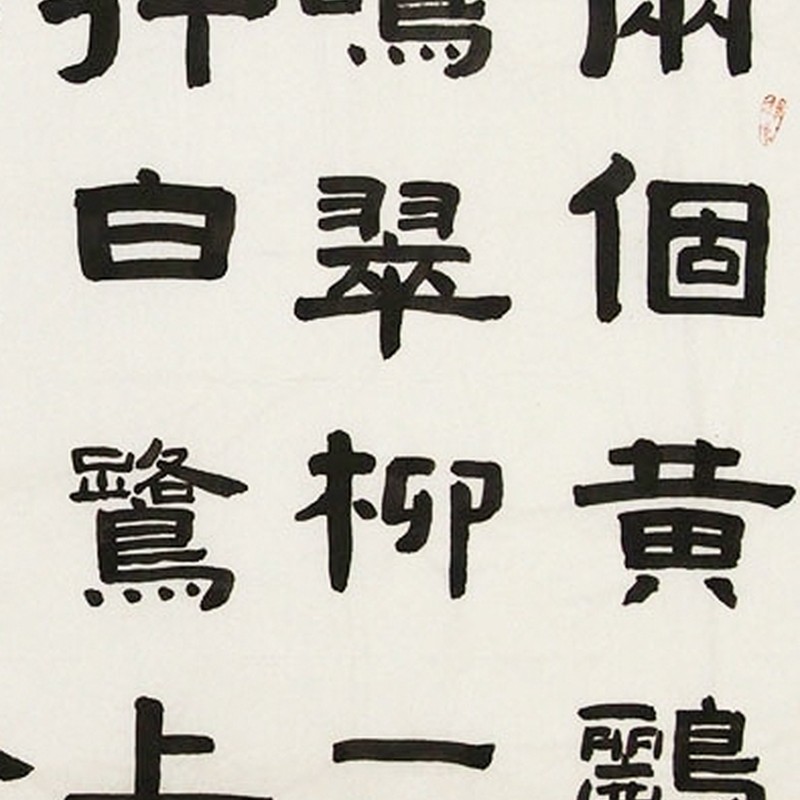 兩個黃鸝
鳴翠柳一
行白鷺上